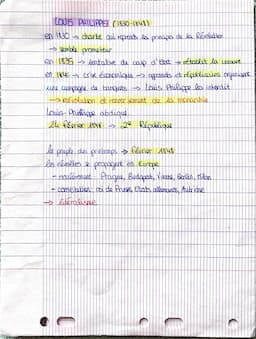 LOUIS PHILIPPE (1830-1848)
en 1830 → charte qui reprends les principes de la Révolution
→ semble prometteur
en 1835 → tentative de coup d'état → rétablit la censure
en 1846 → crise économique → opposants et républicains organisent
une campagne de banquets → Louis Philippe les interdit
→ révolution et renversement de la monarchie
Louis-Philippe abdique
24 février 1848 → 2e République
Le peuple des printemps → février 1848
les révoltes se propagent en Europe
- Prague, Budapest, Vienne, Berlin, Milan
- constitution: roi de Prusse, États allemands, Autriche
→ libéralisme